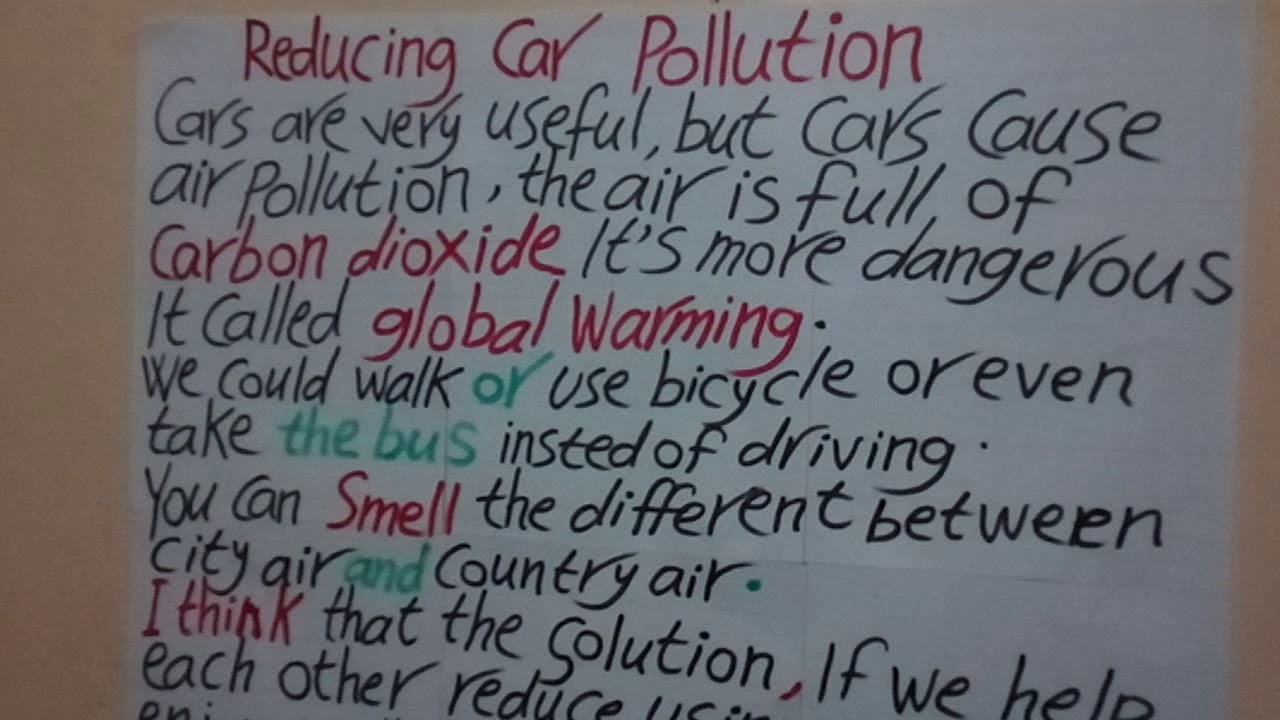 Reducing Car Pollution
Cars are very useful, but Cars Cause
air pollution, the air is full, of
Carbon dioxide It's more dangerous
It Called global Warming.
We Could walk or use bicycle or even
take the bus insted of driving.
You Can Smell the different between
City air and Country air.
I think that the Solution, If we help
each other reduce using